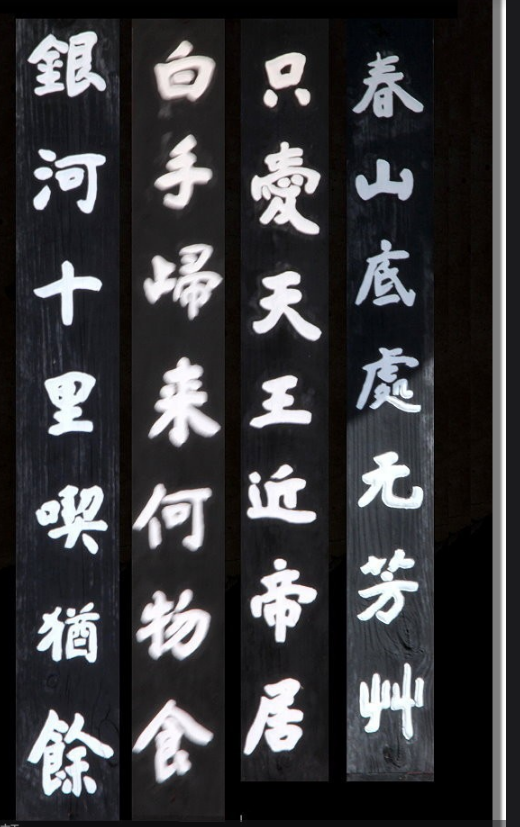 春山底處无芳艸
只愛天王近帝居
白手歸来何物食
銀河十里喫猶餘